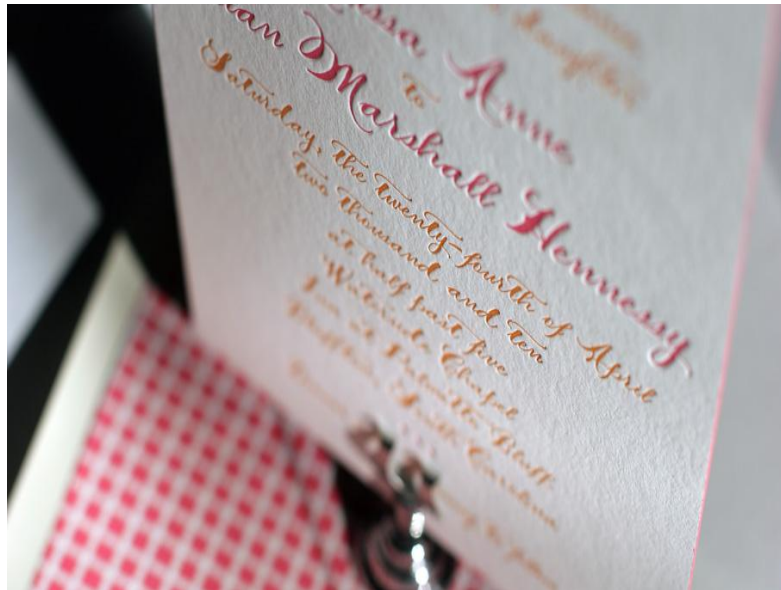 daughter
Anne
to
Marshall Hennessy
Saturday, the twenty-fourth of April
two thousand and ten
at half past five
Waterside Chapel
Inn at Palmetto Bluff
Bluffton, South Carolina